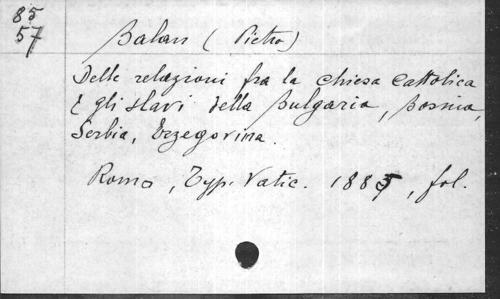 85
57
Balan (Pietro)
Delle relazioni fra la chiesa cattolica
e gli slavi della Bulgaria, Bosnia,
Serbia, Erzegovina.
Roma, Typ. Vatic. 1885, fol.